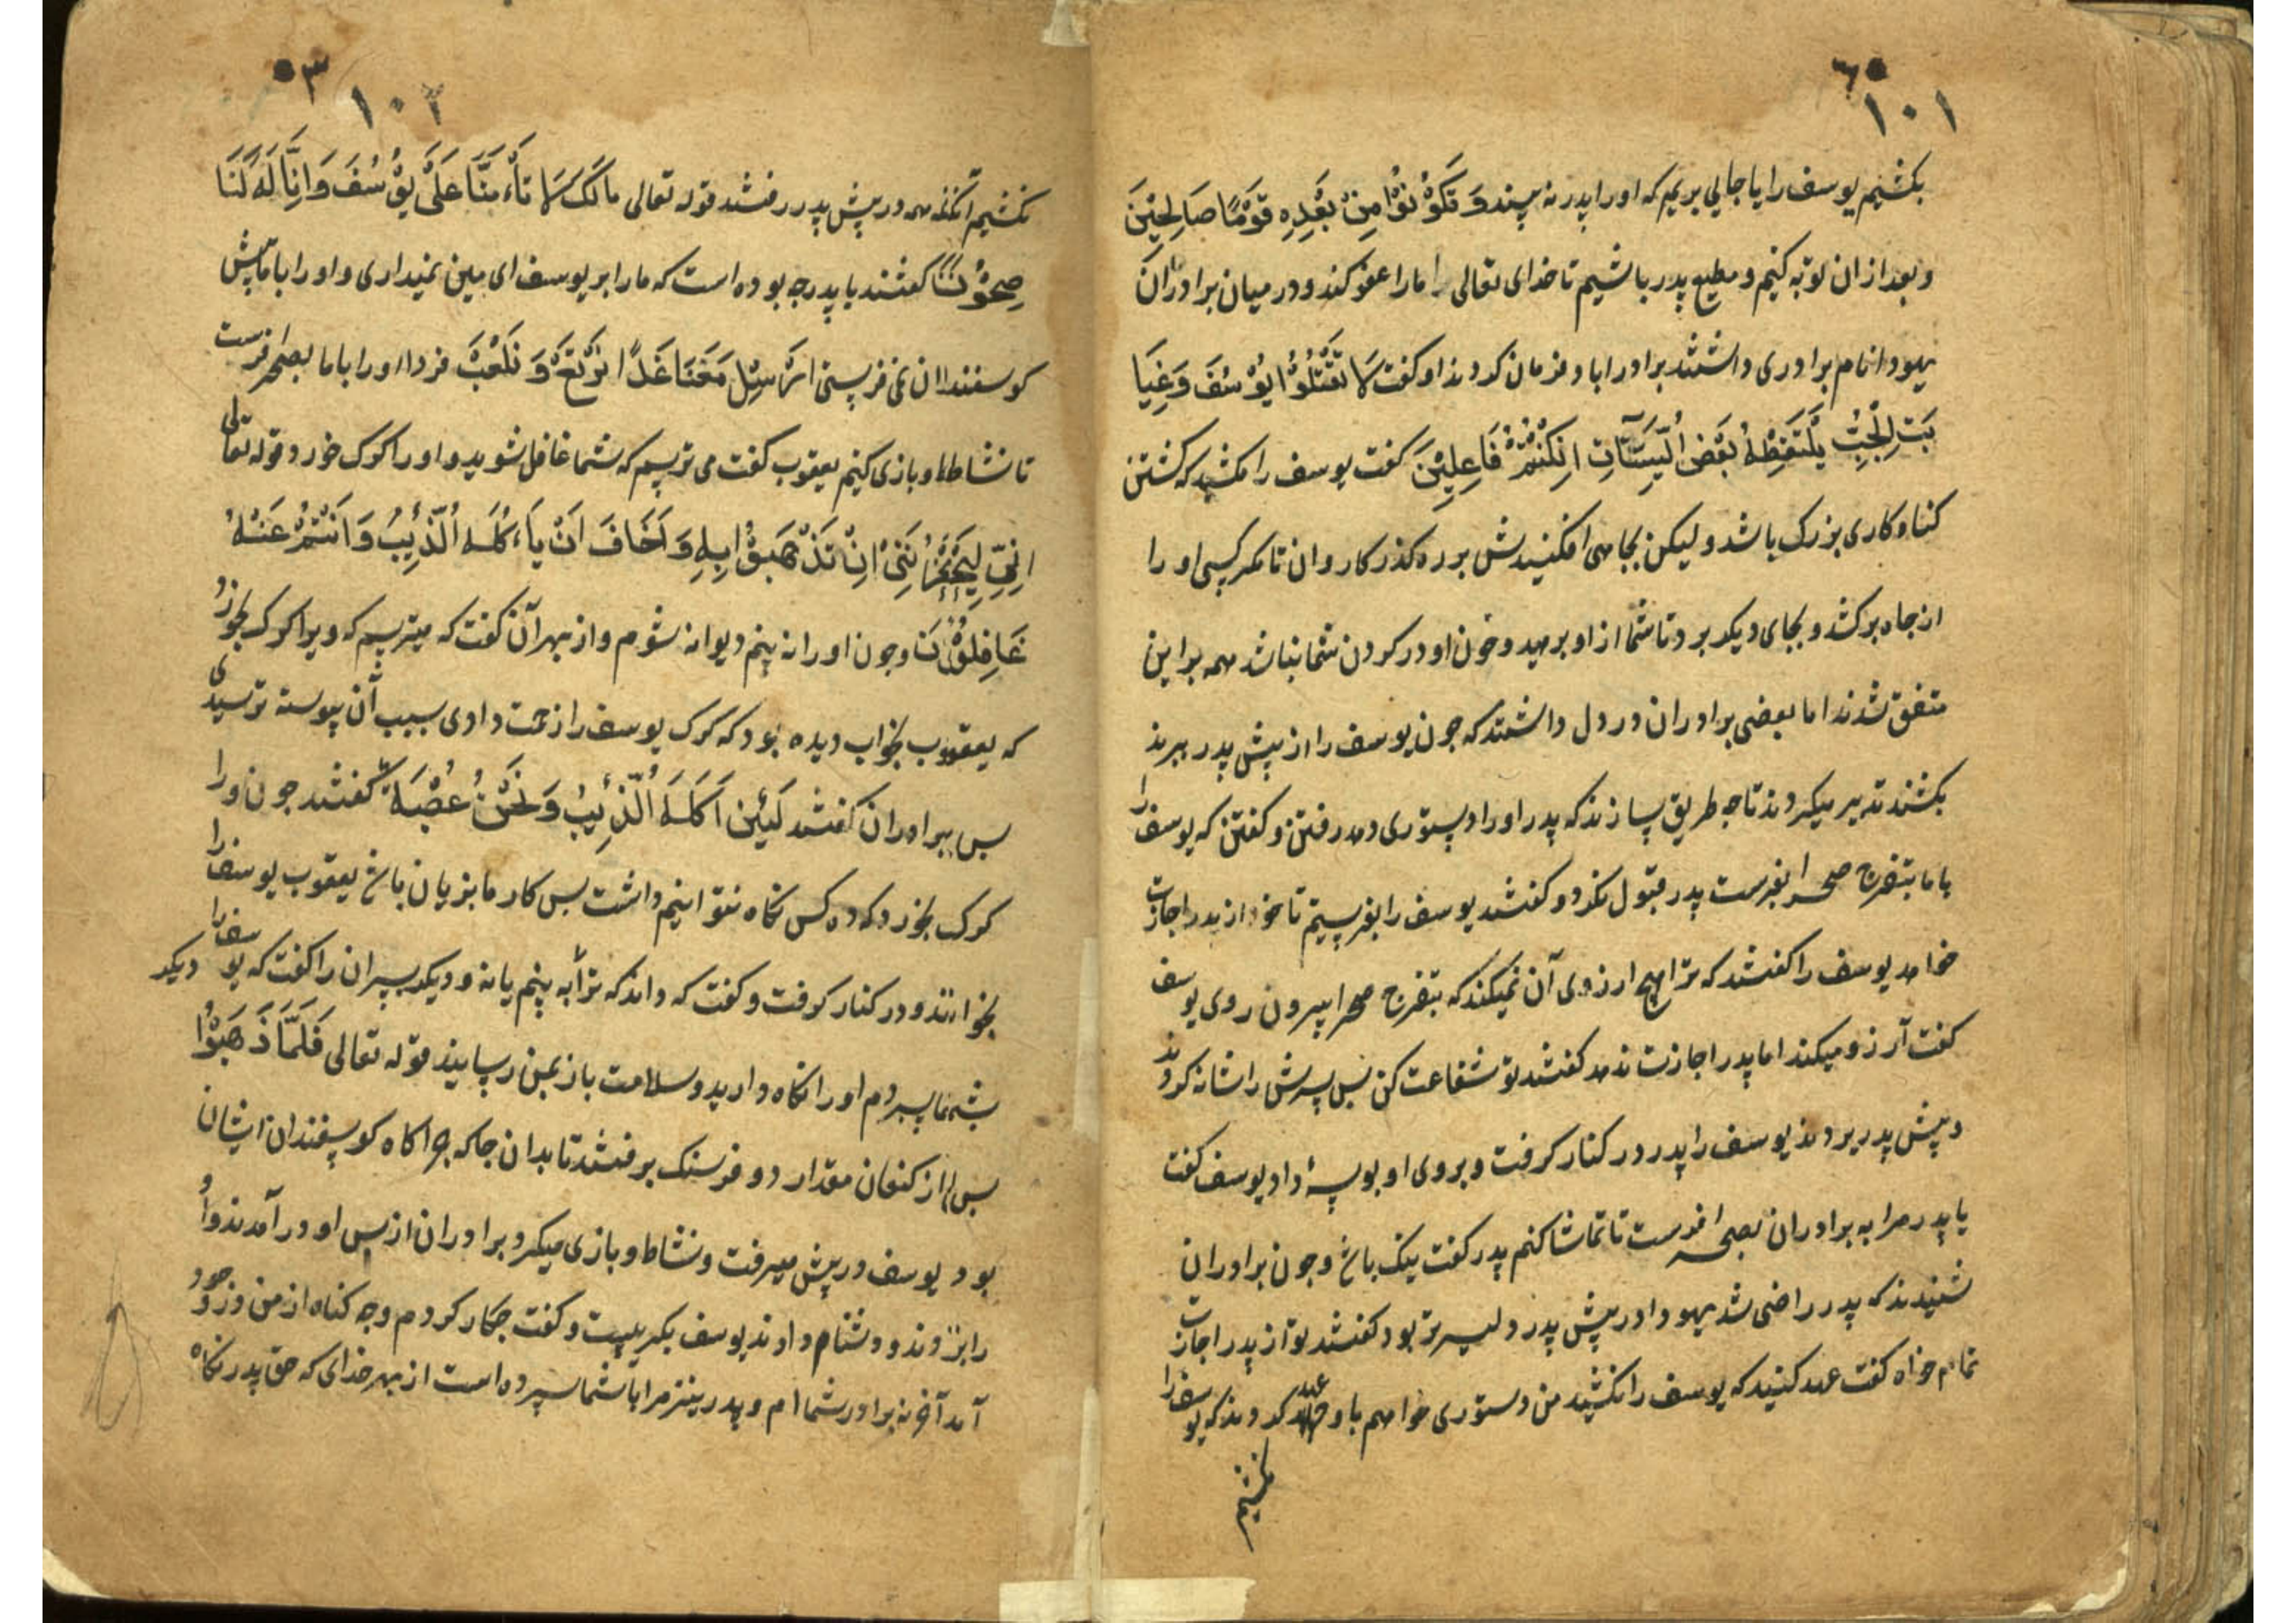 ١٠١
بکشیم یوسف را یا جایی بریم که اورا پدر نه بیند وَ تَکُوْنُوْا مِنْ بَعْدِهِ قَوْمًا صَالِحِیْنَ
و بعد ازان توبه کنیم و مطیع پدر باشیم تا خدای تعالی ما را عفو کند و در میان برادران
یهودا نام برادری داشتند برادرا با و فرمان کردند او کفت لَا تَقْتُلُوْا یُوْسُفَ وَغِیَا
بَتِ الْجُبِّ یَلْتَقِطْهُ بَعْضُ الْسَّیَّارَتِ اِنْکُنْتُمْ فَاعِلِیْنَ کفت یوسف را مکشید که کشتن
کناه کاری بزرک باشد و لیکن بجاهی افکنیدش بر ره کذر کاروان تا مکر کسی اورا
از جاه برکشد و بجای دیکر برد تا شما از او برهید و خون او در کردن شما نباشد همه براین
متفق شدند اما بعضی برادران در دل داشتند که جون یوسف را از پیش پدر ببرند
بکشند تدبیر میکردند تا جه طریق سازند که پدر اورا دستوری دهد رفتن و کفتن که یوسف را
با ما بتفرج صحرا بفرست پدر قبول نکرد و کفتند یوسف را بفریبیم تا خود از پدر اجازت
خواهد یوسف را کفتند که ترا هیچ ارزوی آن نمیکند که بتفرج صحرا بیرون روی یوسف
کفت آرزو میکند اما پدر اجازت ندهد کفتند تو شفاعت کن بس سرش را شانه کردند
و پیش پدر بردند یوسف را پدر در کنار کرفت و بروی او بوسهٔ داد یوسف کفت
یا پدر مرا به برادران بصحرا فرست تا تماشا کنم پدر کفت نیک باشد و جون برادران
شنیدند که پدر راضی شد یهودا در پیش پدر دلیر تر بود کفتند تو از پدر اجازت
تمام خواه کفت عهد کنید که یوسف را نکشید من دستوری خواهم با و عهد کردند که یوسف را
نکشیم
١٠٢
نکشیم آنکه همه در پیش پدر رفتند قوله تعالی مالَکَ لَا تَأْمَنَّا عَلَی یُوْسُفَ وَاِنَّا لَهُ لَنَا
صِحُوْنَ کفتند یا پدر جه بوده است که ما را بر یوسف ای مین نمیداری و اورا با ما پیش
کوسفندان نمی فرستی اَرْسِلْ مَعَنَا غَدًا یَرْتَعْ وَ یَلْعَبْ فردا اورا با ما بصحرا فرست
تا نشاط و بازی کنیم یعقوب کفت می ترسم که شما غافل شوید و اورا کرک خورد قوله تعالی
اِنِّی لَیَحْزُنُنِیْ اِنْ تَذْهَبُوْا بِهِ وَ اَخَافَ اَنْ یَاءکُلَهُ الْذِّئِیبُ وَ اَنْتُمْ عَنْهُ
غَافِلُوْنَ و جون او را نه بینم دیوانه شوم و از بهر آن کفت که میترسم که ویرا کرک بخورد
که یعقوب بخواب دیده بود که کرک یوسف را زحمت دادی بسبب آن پیوسته ترسیدی
بس برادران کفتند لَئِیْن اَکَلَهُ الْذِّئِیبُ وَ نَحْنُ عُصْبَةٌ کفتند جون ورا
کرک بخورد که ده کس نکاه نتوانیم داشت بس کار ما بزیان باشد یعقوب یوسف را
بخواند و در کنار کرفت و کفت که داند که ترا به بینم یا نه و دیکر پسران را کفت که یوسف را
بشما سپردم او را نکاه دارید و سلامت باز بمن رسانید قوله تعالی فَلَمَّا ذَهَبُوْا
بس از کنعان مقدار دو فرسنک برفتند تا بدان جا که جراکاه کوسفندان ایشان
بود یوسف در پیش میرفت و نشاط و بازی میکرد برادران از پس او در آمدند و او
را بزدند و دشنام دادند یوسف بکریست و کفت جکار کردم و جه کناه از من در وجود
آمد آخر نه برادر شما ام و پدر نیز مرا با شما سپرده است از بهر خدای که حق پدر نکاه